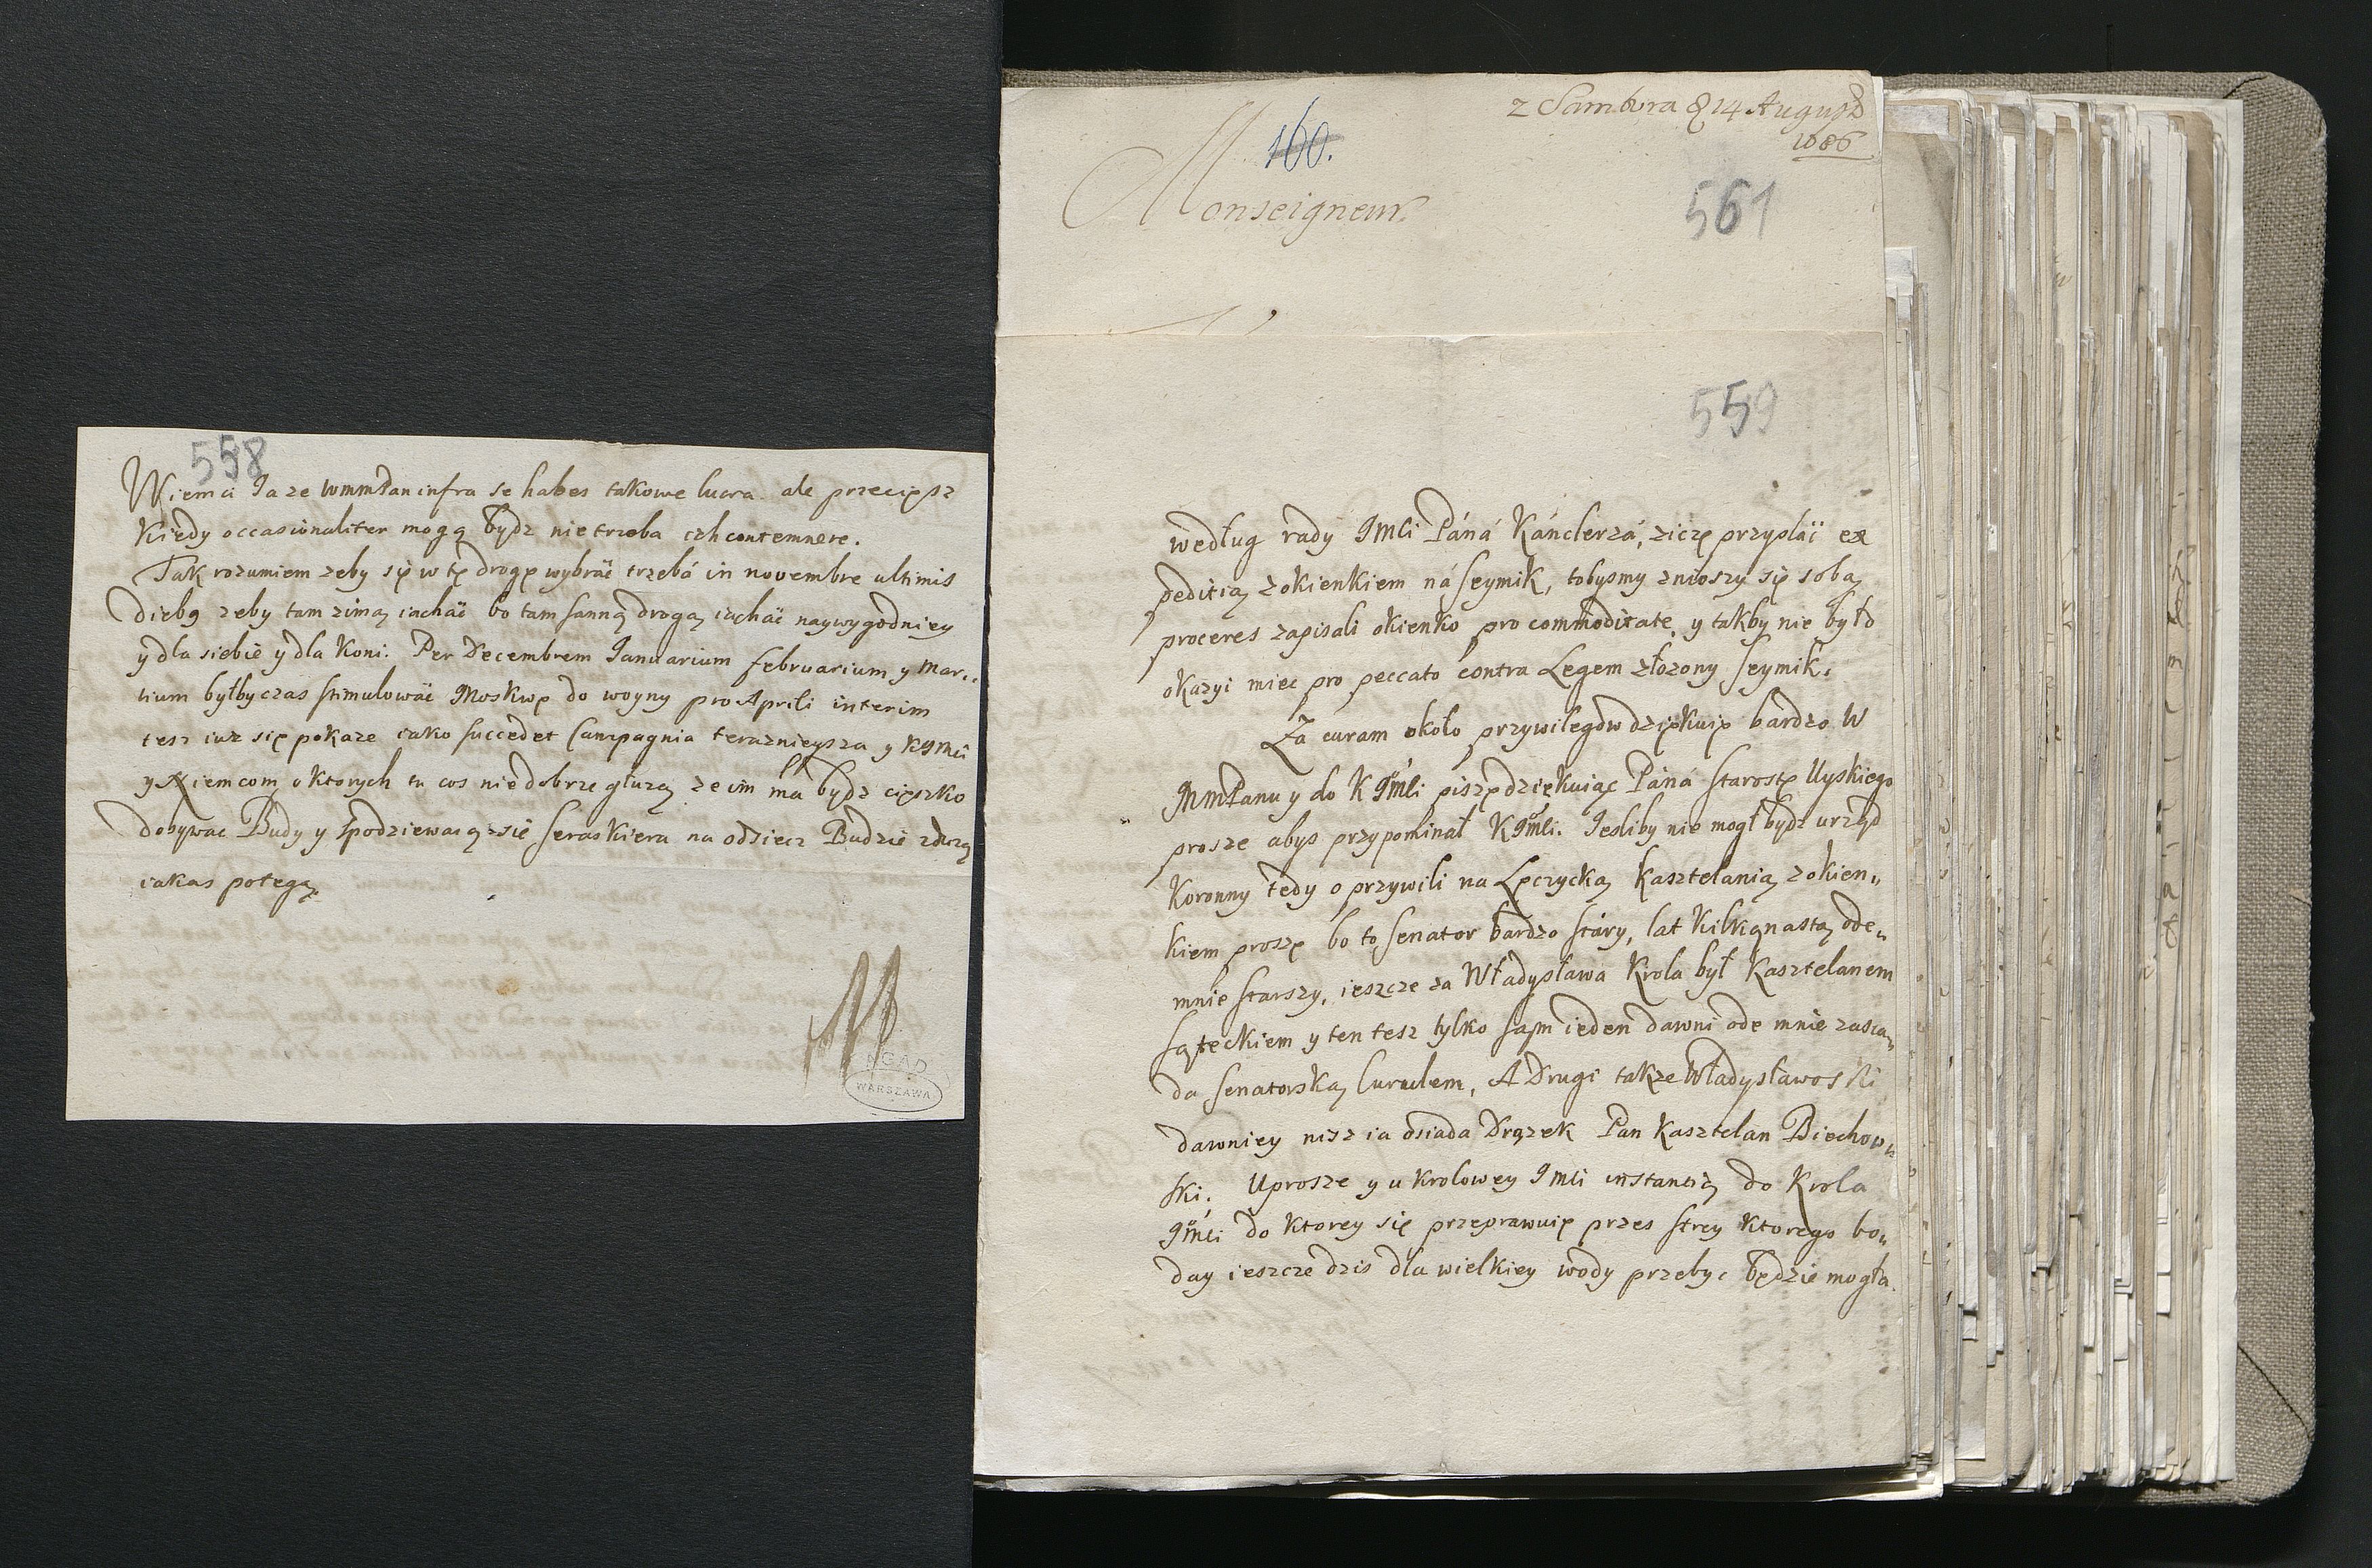 558
Wiem ci Ja ze WmmPan infra se habes takowe lucra. ale przeciesz
Kiedy occasionaliter mogą bydz nie trzeba ich contemnere.
Tak rozumiem zeby się w tę drogę wybrać trzeba in novembre ultimis
dieb9 zeby tam zimą iachać bo tam sanną drogą iachać naywygodniey
y dla siebie y dla Koni. Per Decembrem Januarium februarium y Mar„
tium byłby czas stimulować Moskwę do woyny pro Aprili interim
tesz iuz się pokaze iako succedet Campagnia teraznieysza y KJMci
y Niemcom o Ktorych tu cos nie dobrze głuzą ze im ma bydz cięszko
dobywac Budy y spodziewaią się Seraskiera na odsiecz Budzie z duzą
iakas potegą.
AGAD
WARSZAWA
z Sambora 14 August
1686
160.
Monseigneur
561
559
według rady JMci Páná Kánclerzá, ziczę przysłać ex
peditią z okienkiem ná Seymik, tobysmy zniozszy się sobą
proceres zapisali okienko pro commoditate, y takby nie było
okazyi miec pro peccato contra Legem złozony Seymik.
Za curam około przywilegow dziękuię bardzo W
MmPanu y do K JMci piszę dziękuiąc Páná Starostę Uyskiego
prosze abys przypominał KJMci. Jesliby nie mogł bydz urząd
Koronny tedy o przywili na Lęczycką Kasztelanią z okien„
kiem proszę bo to Senator bardzo stáry, lat Kilkąnastą ode„
mnie starszy, ieszcze za Władysława Krola był Kasztelanem
Sąteckiem y ten tesz tylko sam ieden dawni ode mnie zasia„
da Senatorską Curulem, A Drugi takze Władysławoski
dawniey nisz ia osiada Drązek Pan Kasztelan Biechow„
ski. Uprosze y u Krolowey JMci instancią do Krola
JMci do Ktorey się przeprawuię przes Strey Ktorego bo„
day ieszcze dzis dla wielkiey wody przebyc będzie mogła.